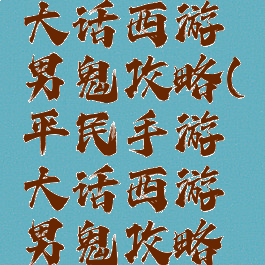 大话西游
男鬼攻略(
平民手游
大话西游
男鬼攻略